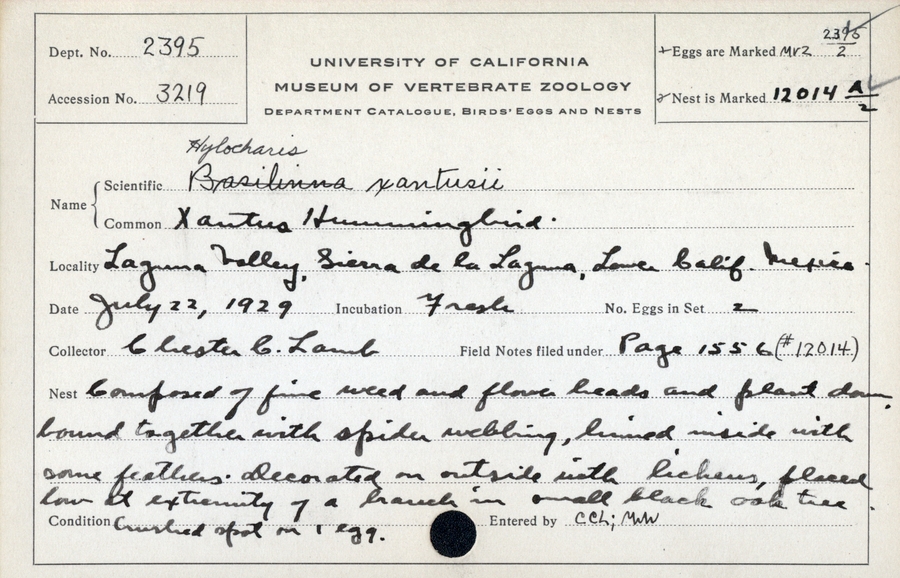 Dept. No. 2395
Accession No. 3219
UNIVERSITY OF CALIFORNIA
MUSEUM OF VERTEBRATE ZOOLOGY
DEPARTMENT CATALOGUE, BIRDS' EGGS AND NESTS
Eggs are Marked Mr2 2395/2
Nest is Marked 12014 A/2
Hylocharis
Name
Scientific Basilinna xantusii
Common Xantus Hummingbird.
Locality Laguna Valley, Sierra de la Laguna, Lower Calif. Mexico.
Date July 22, 1929 Incubation Fresh No. Eggs in Set 2
Collector Chester C. Lamb Field Notes filed under Page 1556 (#12014)
Nest Composed of fine weed and flower heads and plant down,
bound together with spider webbing, lined inside with
some feathers. Decorated on outside with lichens, placed
low at extremity of a branch in small black oak tree.
Condition Crushed spot on 1 egg. Entered by CCL; MWW